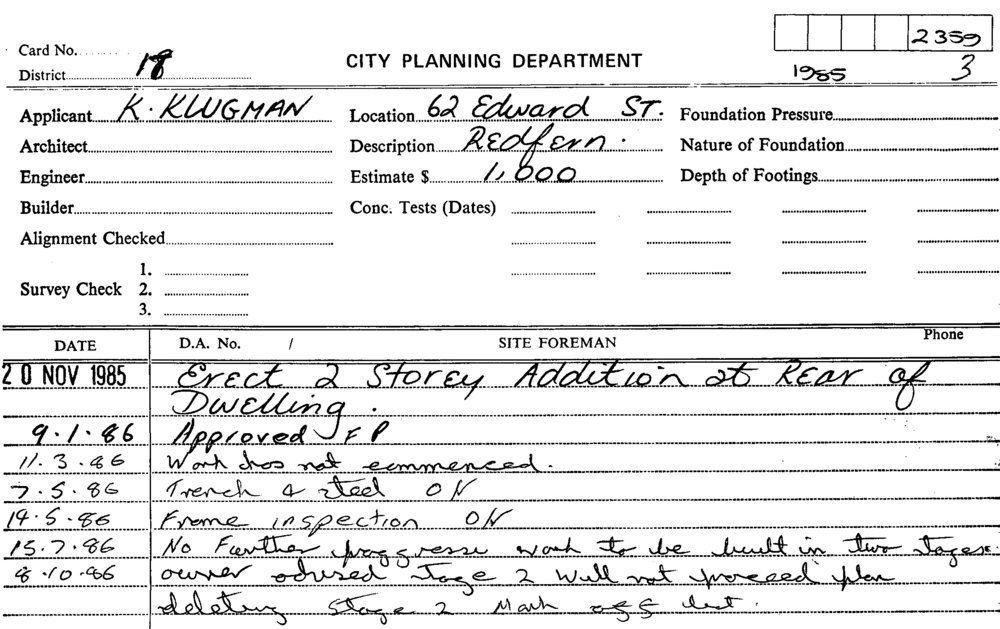 2359
Card No. CITY PLANNING DEPARTMENT
District 18 1985 3
Applicant K. KLUGMAN Location 62 Edward ST. Foundation Pressure
Architect Description REDfern. Nature of Foundation
Engineer Estimate $ 1,000 Depth of Footings
Builder Conc. Tests (Dates)
Alignment Checked
1.
Survey Check 2.
3.
DATE D.A. No. / SITE FOREMAN Phone
20 NOV 1985 Erect 2 Storey Addition at Rear of
Dwelling.
9.1.86 Approved FP
11.3.86 Work has not commenced.
7.5.86 Trench & steel OK
14.5.86 Frame inspection OK
15.7.86 No Further work to be built in two stages.
8.10.86 owner advised stage 2 will not proceed plan
deleting stage 2 Mark off